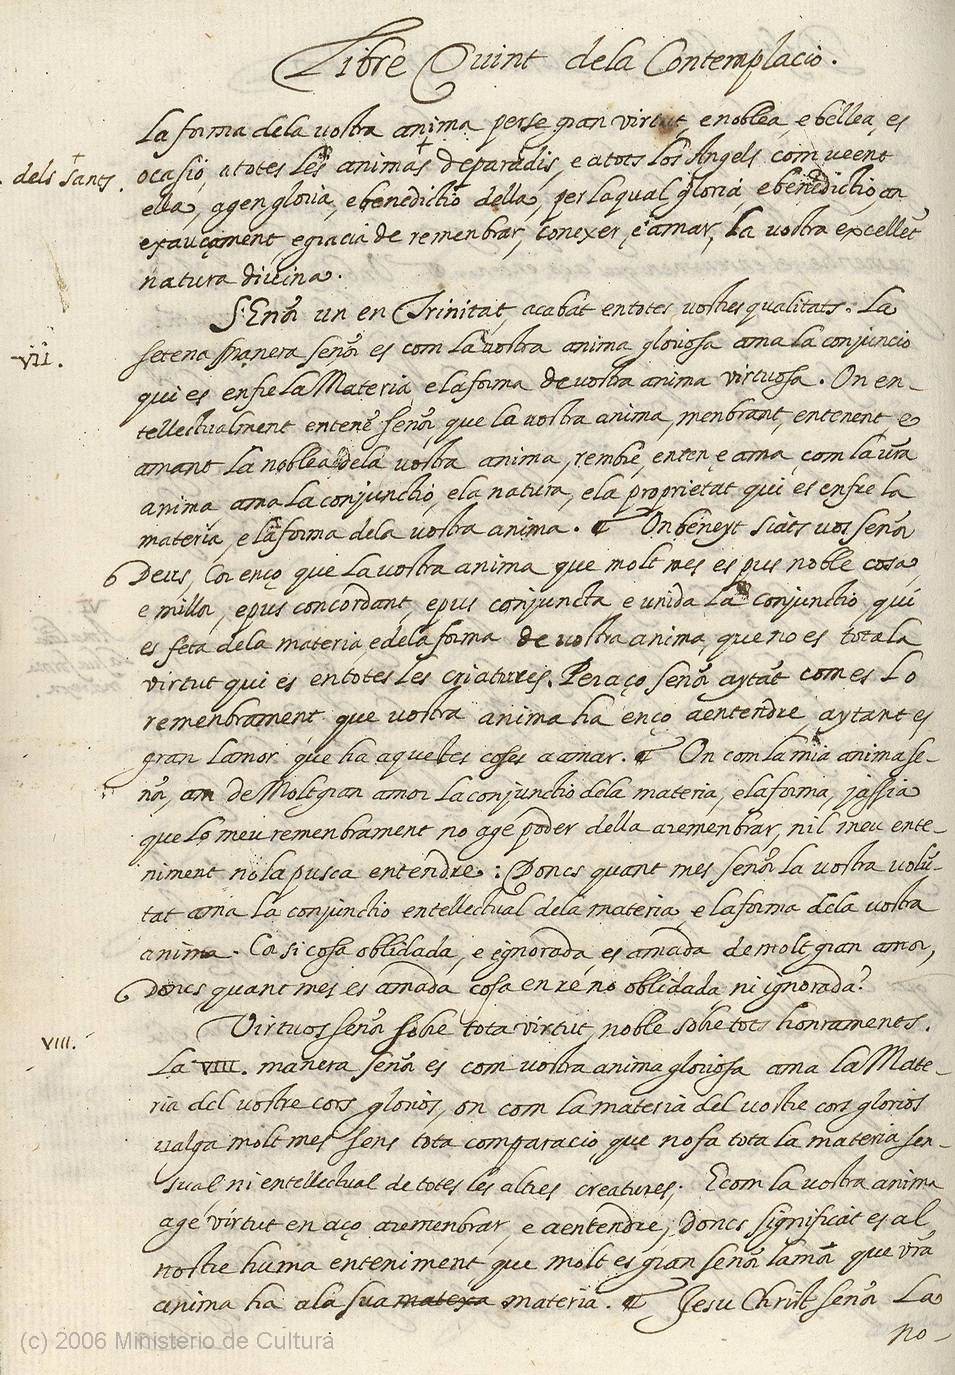 Libre Quint dela Contemplacio.
La forma dela vostra anima perse gran virtut, e noblea, e bellea, es
dels Sants.
ocasió, a totes les animas de paradis, e a tots los Angels com veent
ella, agen gloria, e benedictio della, per laqual gloria e benedictio an
exauçament, e gracia de remenbrar, conexer, e amar, la vostra excellēt
natura divina.
SEnõr un en Trinitat, acabat en totes vostres qualitats. La
VII.
setena manera señor es com la vostra anima gloriosa ama la conjunccio
qui es enfre la Materia e la forma de vostra anima virtuosa. On en-
tellectualment entene señor, que la vostra anima, menbrant, entenent e
amant la noblea dela vostra anima, rembre, enten, e ama, com la vr̃a
anima ama la conjunctió, e la natura, e la proprietat qui es enfre la
materia, e la forma dela vostra anima. ¶ On beneyt siats vos señor
Deus, Cor enço que la vostra anima que molt mes es pus noble cosa,
e millor, e pus concordant, e pus conjuncta e unida la conjunctio qui
es feta dela materia e dela forma de vostra anima, que no es tota la
virtut qui es en totes les criatures. Per aço señor aytāt com es lo
remenbrament que vostra anima ha enço a entendre, aytant es
gran lamor que ha aquestes coses a amar. ¶ On com la mia anima se-
ñor, am de Molt gran amor la conjunctio dela materia, e la forma, jassia
que lo meu remenbrament no age poder della a remenbrar, nil meu ente-
niment no la pusca entendre: Doncs quant mes señor la vostra volū-
tat ama la conjunctio entellectual dela materia, e la forma dela vostra
anima. Ca si cosa oblidada, e egnorada, es amada de molt gran amor,
Doncs quant mes es amada cosa en re no oblidada ni ignorada?
Virtuos señor sobre tota virtut, noble sobre tots honraments.
VIII.
La VIII. manera señor es com vostra anima gloriosa ama la Mate-
ria del vostre cors glorios, on com la materia del vostre cors glorios
valga molt mes sens tota comparacio, que no fa tota la materia sen-
sual ni entellectual de totes les altres creatures; E com la vostra anima
age virtut en aço a remenbrar, e a entendre, doncs significat es al
nostre huma enteniment que molt es gran señor lamor que vr̃a
anima ha a la sua matexa materia. ¶ Jesu Christ señor La
no-
(c) 2006 Ministerio de Cultura